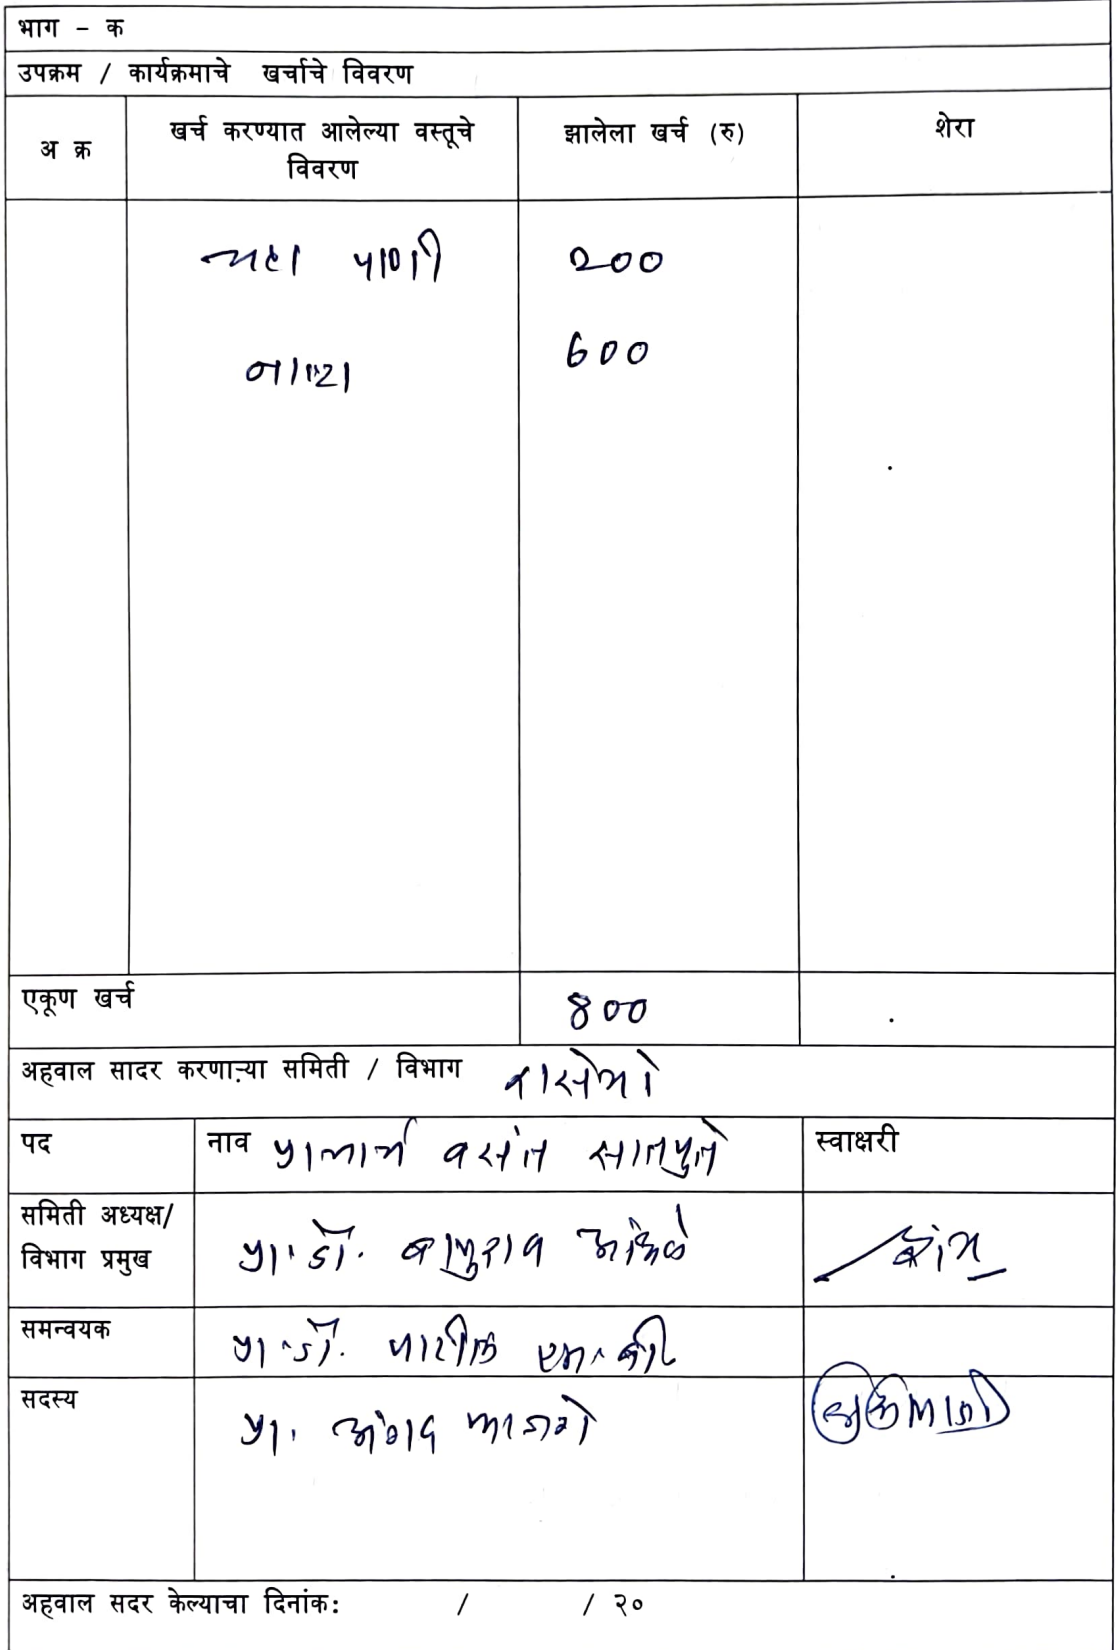 भाग - क
उपक्रम / कार्यक्रमाचे खर्चाचे विवरण
अ क्र
खर्च करण्यात आलेल्या वस्तूचे
विवरण
झालेला खर्च (रु)
शेरा
चहा पाणी 200
नाष्टा 600
एकूण खर्च 800
अहवाल सादर करणाऱ्या समिती / विभाग रासेयो
पद नाव प्राचार्य वसंत सातपुते स्वाक्षरी
समिती अध्यक्ष/
विभाग प्रमुख
प्रा. डॉ. बापुराव आंधळे
समन्वयक
प्रा. डॉ. पाटील एम. बी
सदस्य
प्रा. अंगद
अहवाल सदर केल्याचा दिनांक: / / २०